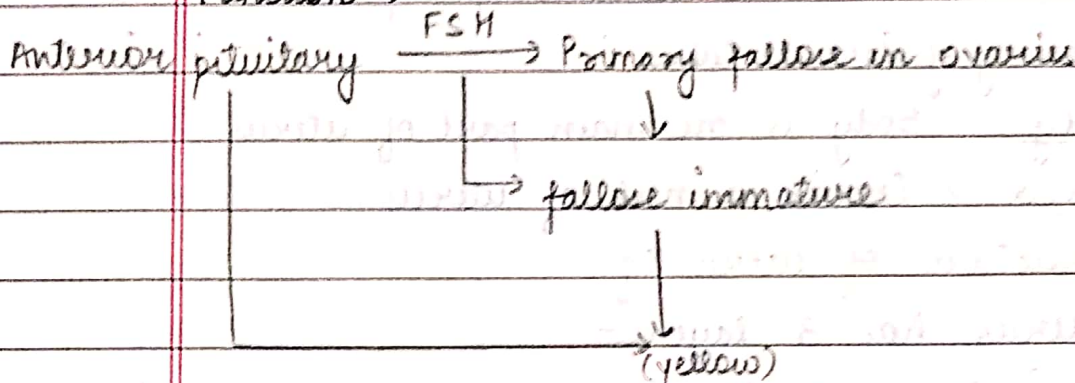 FSH
Anterior pituitary → Primary follose in ovaries
follose immature
(yellow)